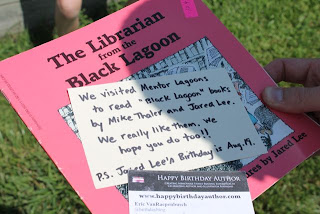 The Librarian
from the
Black Lagoon
We visited Mentor Lagoons
to read "Black Lagoon" books
by Mike Thaler and Jared Lee.
We really like them. We
hope you do too!!
P.S. Jared Lee's Birthday is Aug. 19.
ures by Jared Lee
HAPPY BIRTHDAY AUTHOR
www.happybirthdayauthor.com
Eric VanRaepenbusch